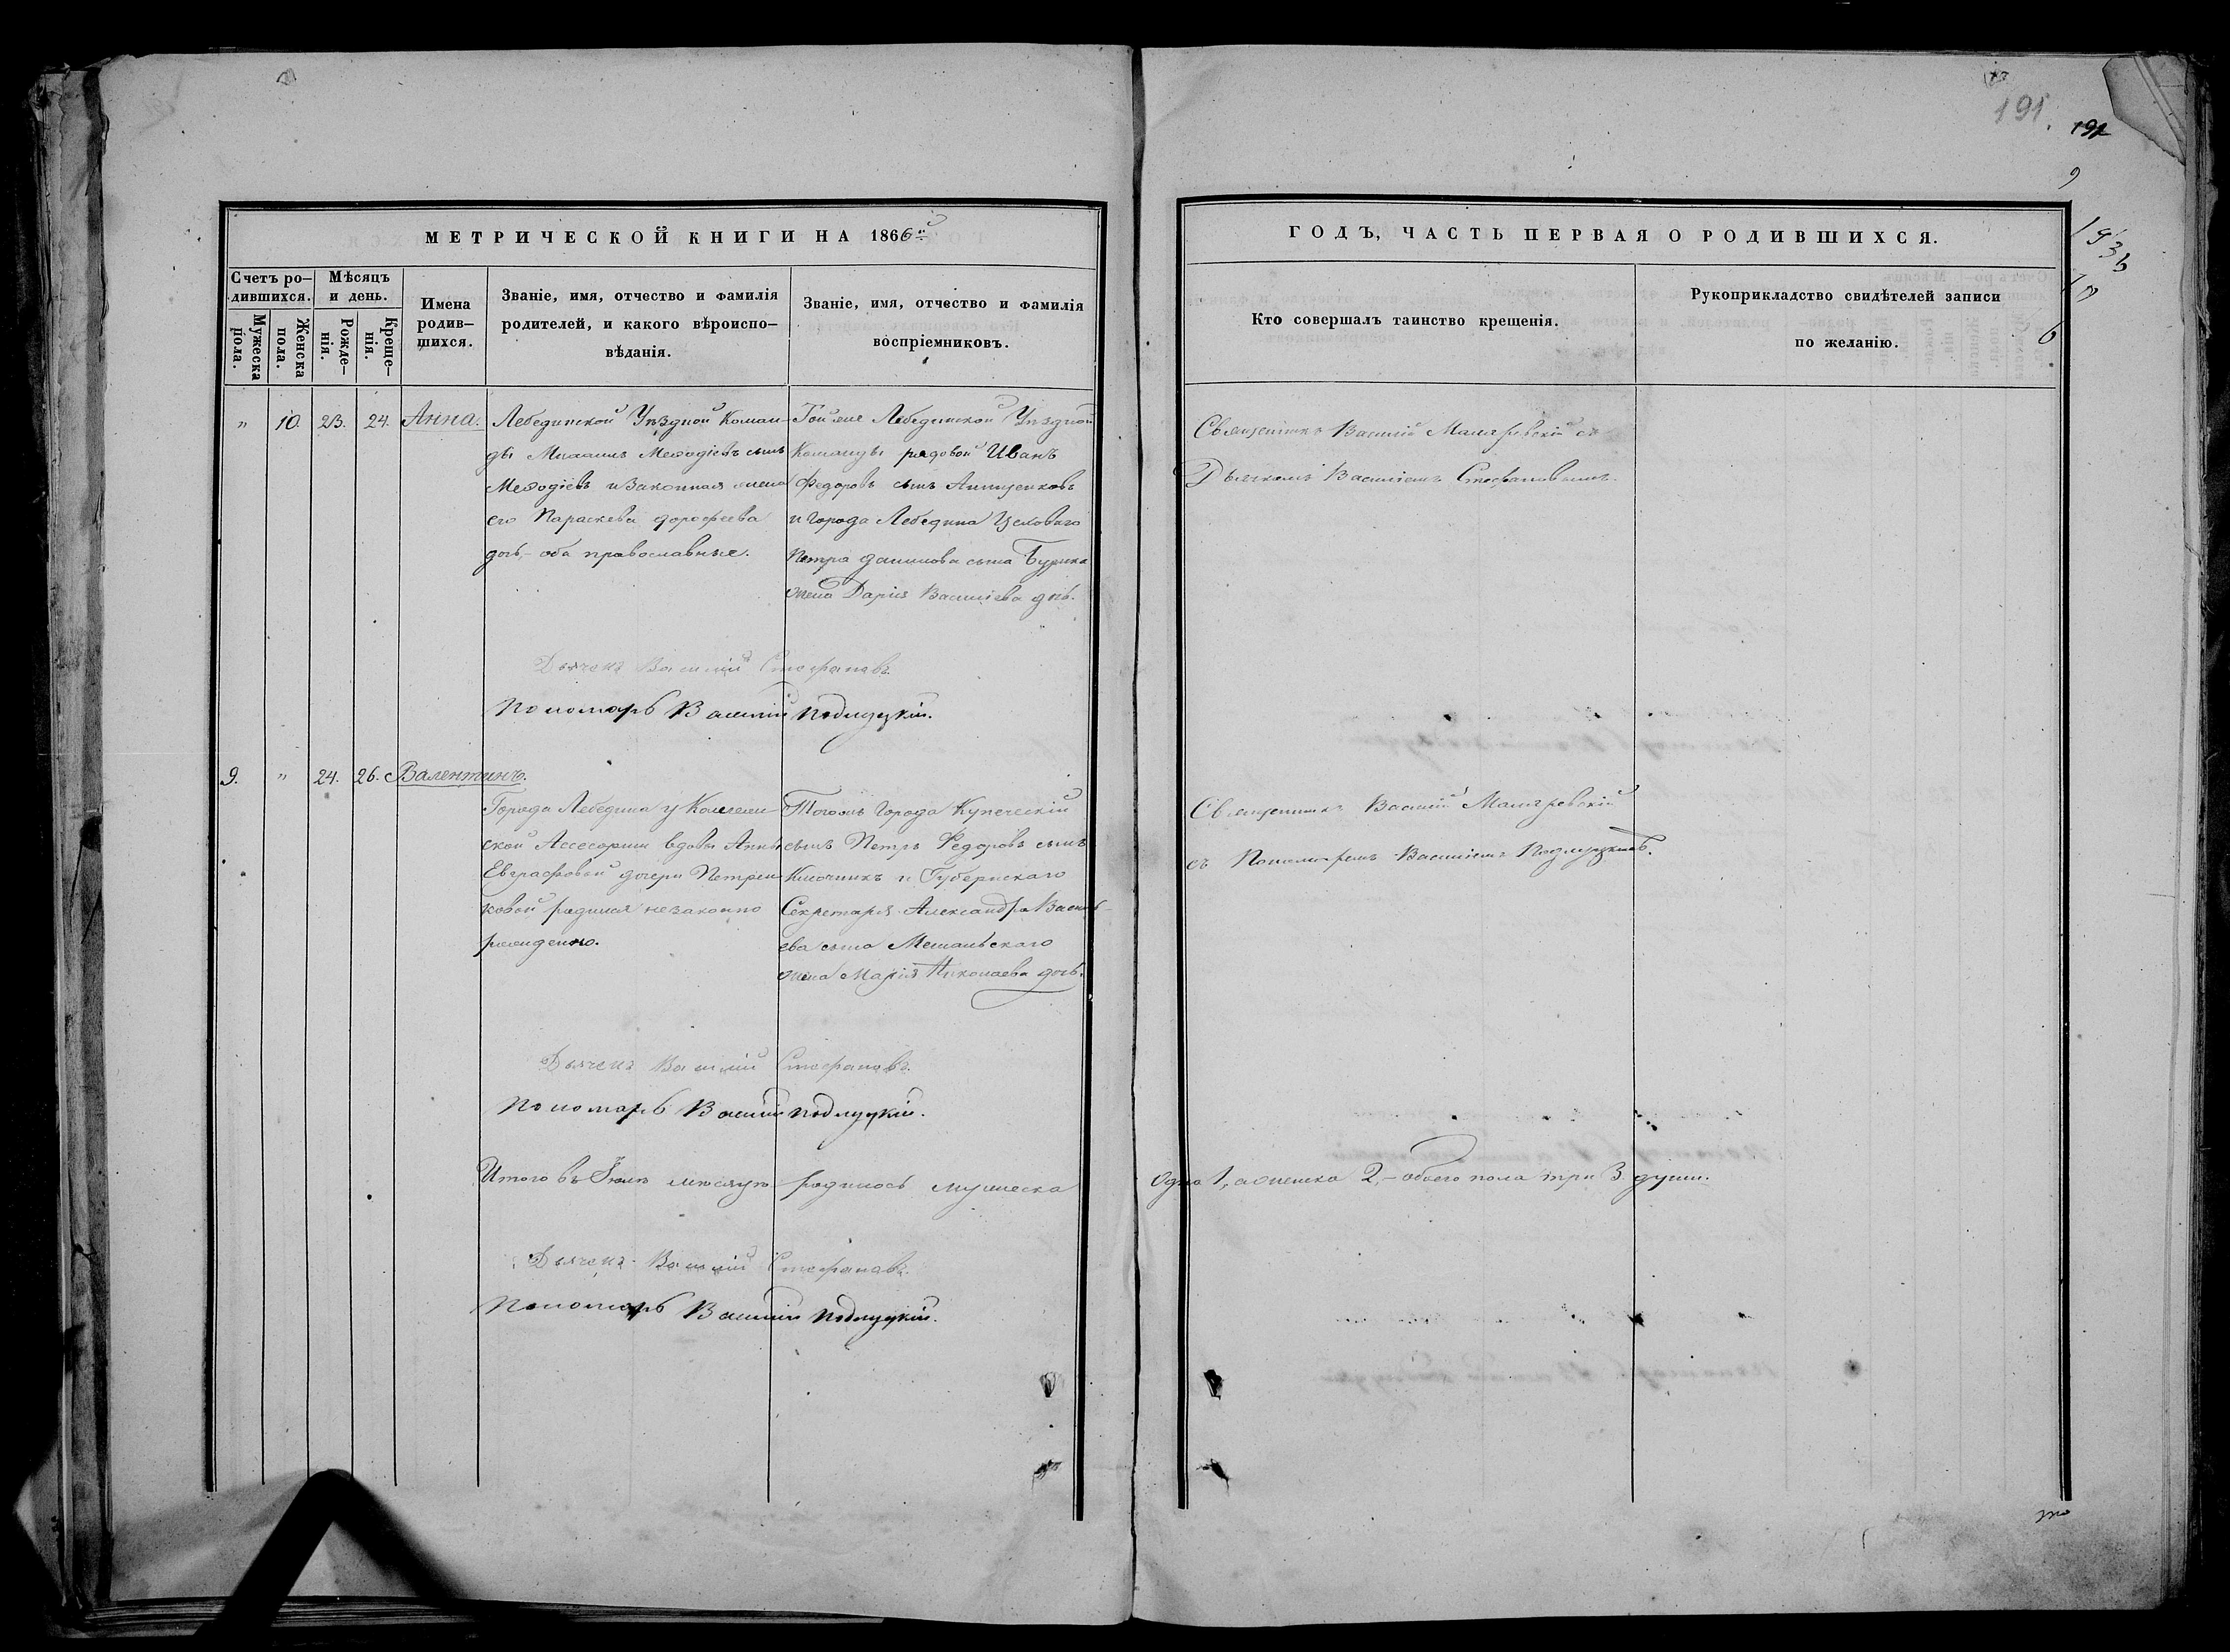 191.
192
МЕТРИЧЕСКОЙ КНИГИ НА 1866й
ГОДЪ, ЧАСТЬ ПЕРВАЯ О РОДИВШИХСЯ.
Счетъ ро-
дившихся.
Мужеска
пола.
Женска
пола.
Мѣсяцъ
и день.
Рожде-
нія.
Креще-
нія.
Имена
родив-
шихся.
Званіе, имя, отчество и фамилія
родителей, и какого вѣроиспо-
вѣданія.
Званіе, имя, отчество и фамилія
воспріемниковъ.
Кто совершалъ таинство крещенія.
Рукоприкладство свидѣтелей записи
по желанію.
" 10. 23. 24. Анна.
Лебединской Уѣздной Коман-
ды Михаилъ Меѳодіевъ сынъ
Меѳодіевъ и Законная жена
его Параскева Дорофеева
дочь,- оба православные.
Той же Лебединской Уѣздной
Команды рядовой Иванъ
Федоровъ сынъ
и города Лебедина Цеховаго
Петра Данилова сына Бурика
жена Дарія Василіева дочь.
Священникъ Василій съ
Дьячкомъ Василіемъ Стефановымъ.
Дьячекъ Василій Стефановъ.
Пономарь Василій Подлуцкій.
9. " 24. 26. Валентинъ.
Города Лебедина у Коллеж
ской Ассесорши вдовы Анны
Евграфовой дочери Петрен
ковой родился незаконно
рожденно.
Тогожъ города Купеческій
сынъ Петръ Федоровъ сынъ
Ключникъ и Губернскаго
Секретаря Александра Василь-
ева сына
жена Марія Николаева дочь.
Священникъ Василій
съ Пономаремъ Василіемъ Подлуцкимъ.
Дьячекъ Василій Стефановъ.
Пономарь Василій Подлуцкій.
Итого въ мѣсяцѣ родилось мужеска
одна 1, а женска 2,- обоего пола три 3 души.
Дьячекъ Василій Стефановъ.
Пономарь Василій Подлуцкій.